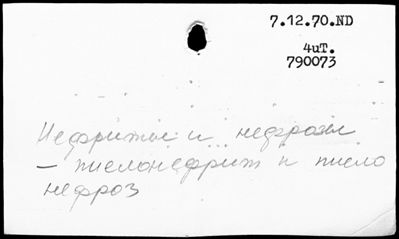 7.12.70.ND
4иT.
790073
Нефриты и нефрозы
– пиелонефрит и пиело
нефроз